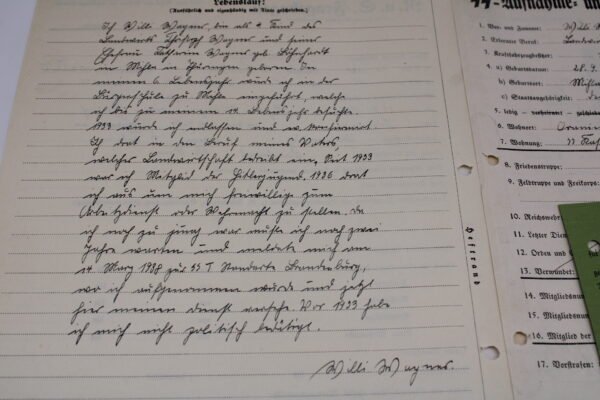 Lebenslauf:
(Ausführlich und eigenhändig mit Tinte geschrieben.)
Ich Willi Wagner, bin als 4. Kind des
Landwirts Christoph Wagner und seiner
Ehefrau Katharina Wagner geb.
in Mihla in Thüringen geboren. In
meinem 6. Lebensjahr wurde ich in der
Bürgerschule zu Mihla eingeschult, welche
ich bis zu meinem 14. Lebensjahr besuchte.
1933 wurde ich entlassen und ev. konfirmiert.
Ich trat in den Beruf meines Vaters,
welcher Landwirtschaft betreibt ein. Seit 1933
war ich Mitglied der Hitlerjugend. 1936 trat
ich aus um mich freiwillig zum
Arbeitsdienst oder Wehrmacht zu stellen. Da
ich noch zu jung war mußte ich noch zwei
Jahre warten und meldete mich am
14. März 1938 zur SS T Standarte Brandenburg,
wo ich aufgenommen wurde und jetzt
hier meinen Dienst versehe. Vor 1933 habe
ich mich nicht politisch betätigt.
Willi Wagner.
Heftrand
SS-Aufnahme- un
1. Vor- und Zuname: Willi
2. Erlernter Beruf: Landwir
3. Kraftfahrzeugbesitzer:
4. a) Geburtsdatum: 28.9.
b) Geburtsort: Mihla
c) Staatsangehörigkeit: de
5. ledig
6. Wohnort: Oranien
7. Wohnung:
8. Friedenstruppe:
9. Feldtruppe und Freikorps:
10. Reichsweh
11. Letzter Die
12. Orden und
13. Verwundet:
14. Mitgliedsnum
15. Mitgliedsnum
16. Mitglied der
17. Vorstrafen: